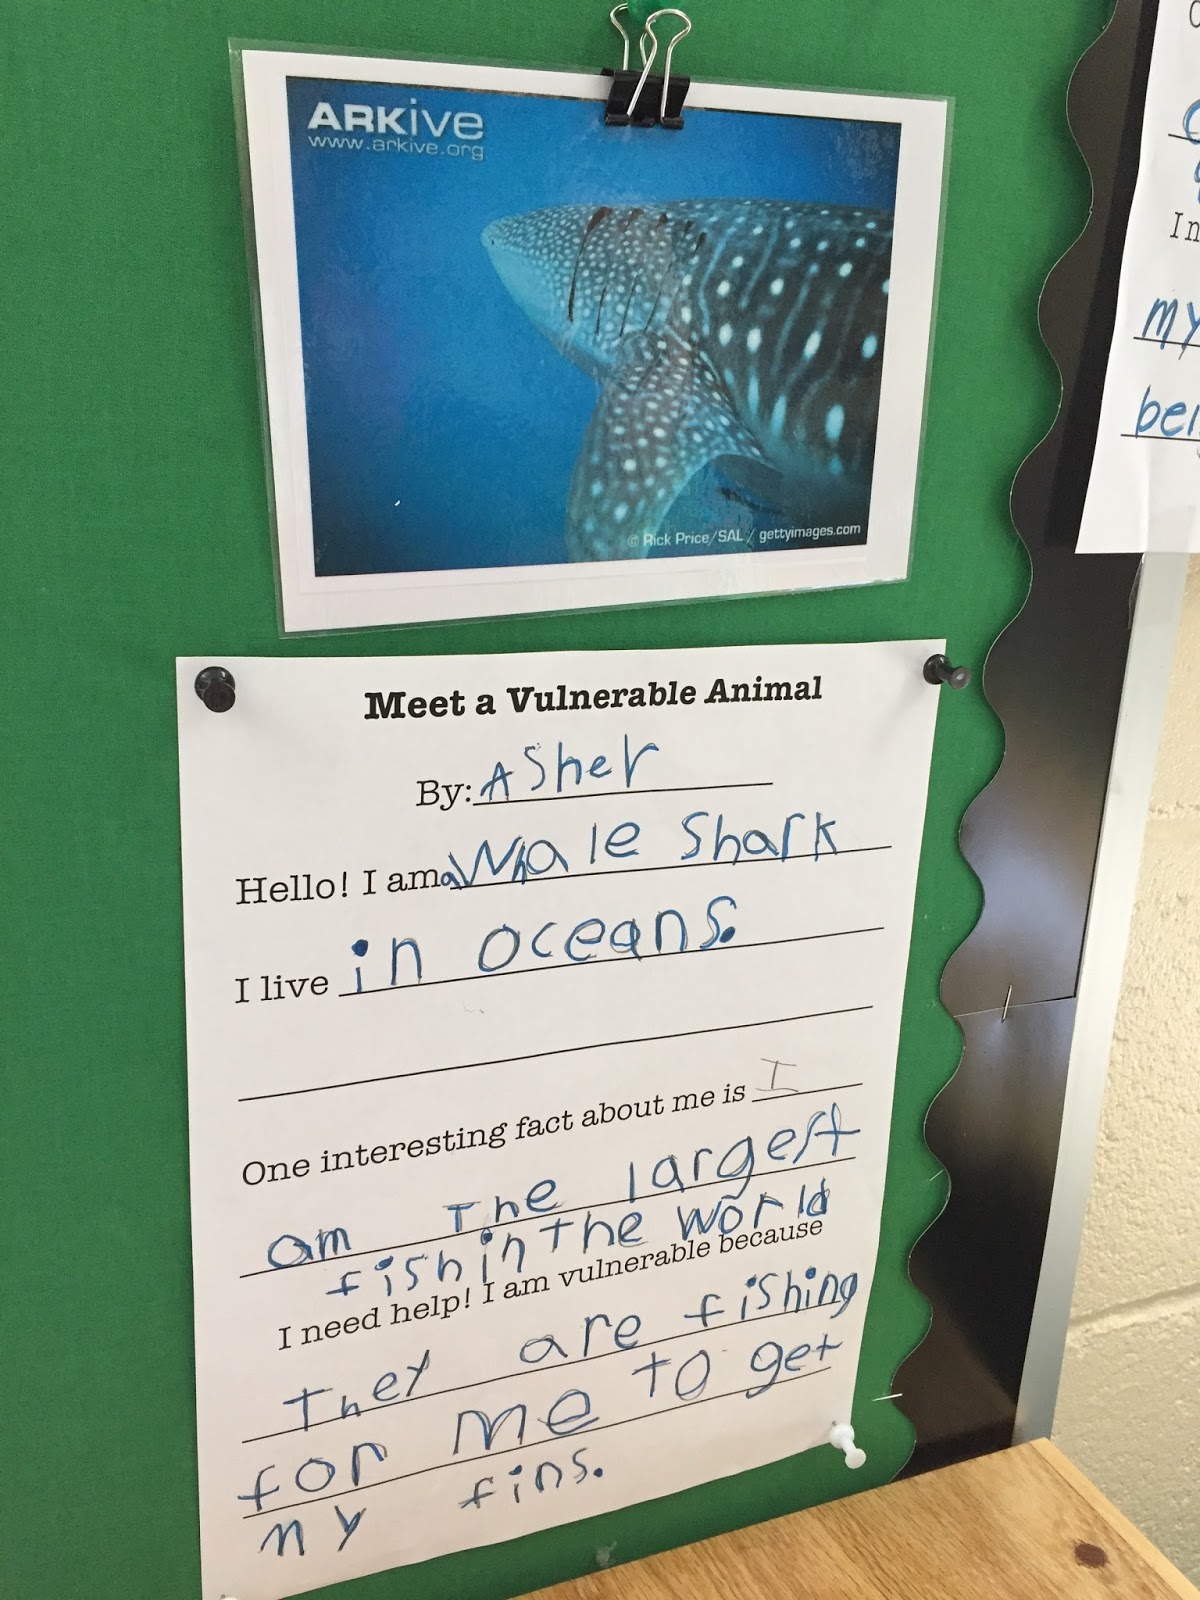 ARKive
www.arkive.org
© Rick Price/SAL / gettyimages.com
Meet a Vulnerable Animal
By: Asher
Hello! I am a Whale Shark
I live in oceans.
One interesting fact about me is I
am The largest
fish in The World
I need help! I am vulnerable because
They are fishing
for me To get
my fins.
In
my